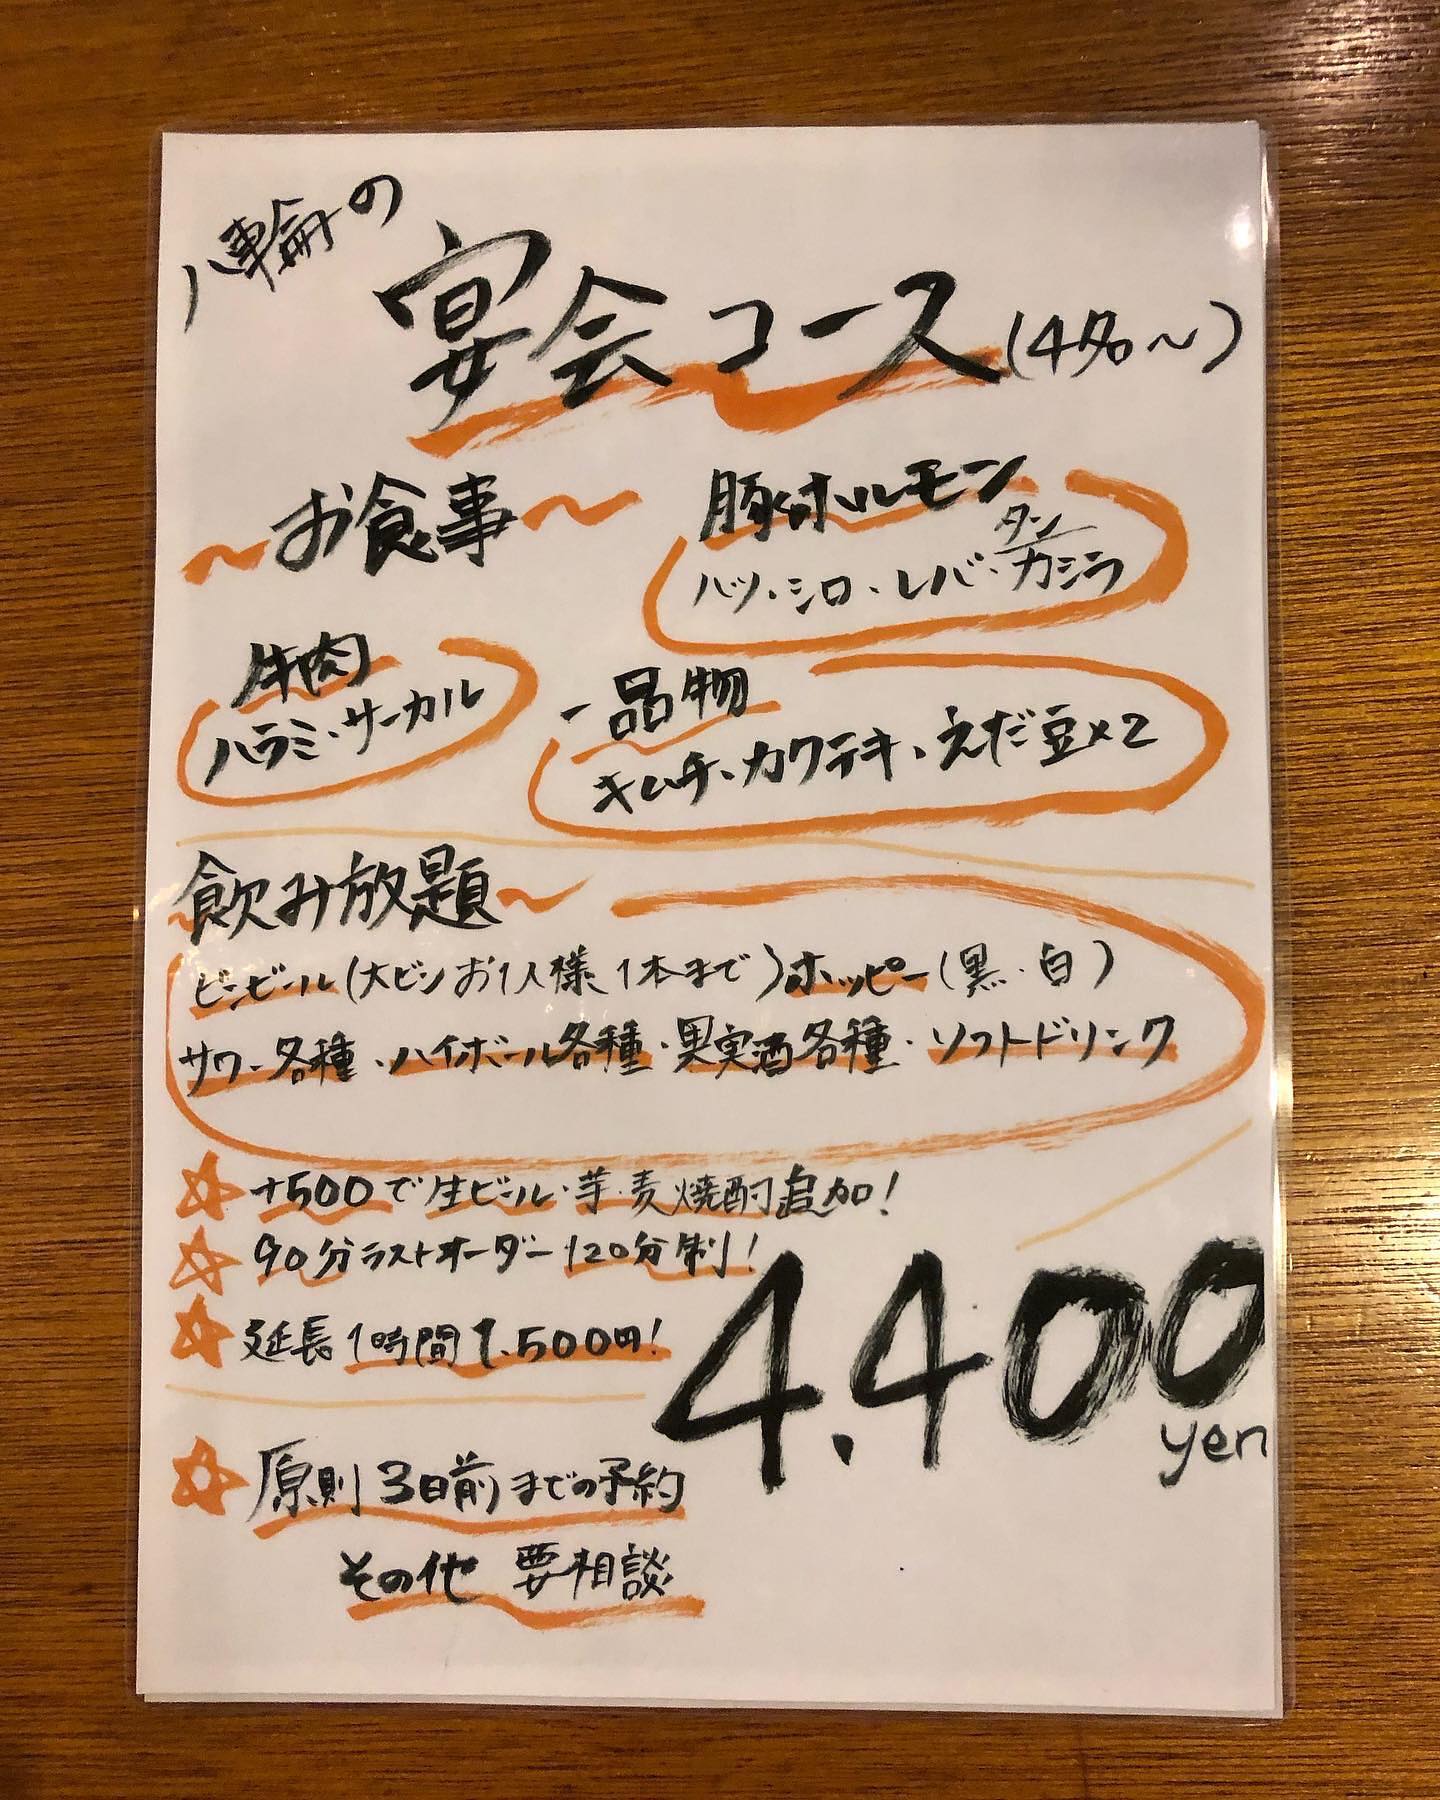 八輪の
宴会コース(4名～)
～お食事～
豚ホルモン
タン
ハツ・シロ・レバ・カシラ
牛肉
ハラミ・サーカル
一品物
キムチ、カクテキ、えだ豆×2
～飲み放題～
ビンビール(大ビンお1人様1本まで)ホッピー(黒・白)
サワー各種・ハイボール各種・果実酒各種・ソフトドリンク
☆+500で生ビール・芋・麦焼酎追加！
☆90分ラストオーダー120分制！
☆延長1時間1.500円！
4.400
yen
☆原則3日前までの予約
その他 要相談